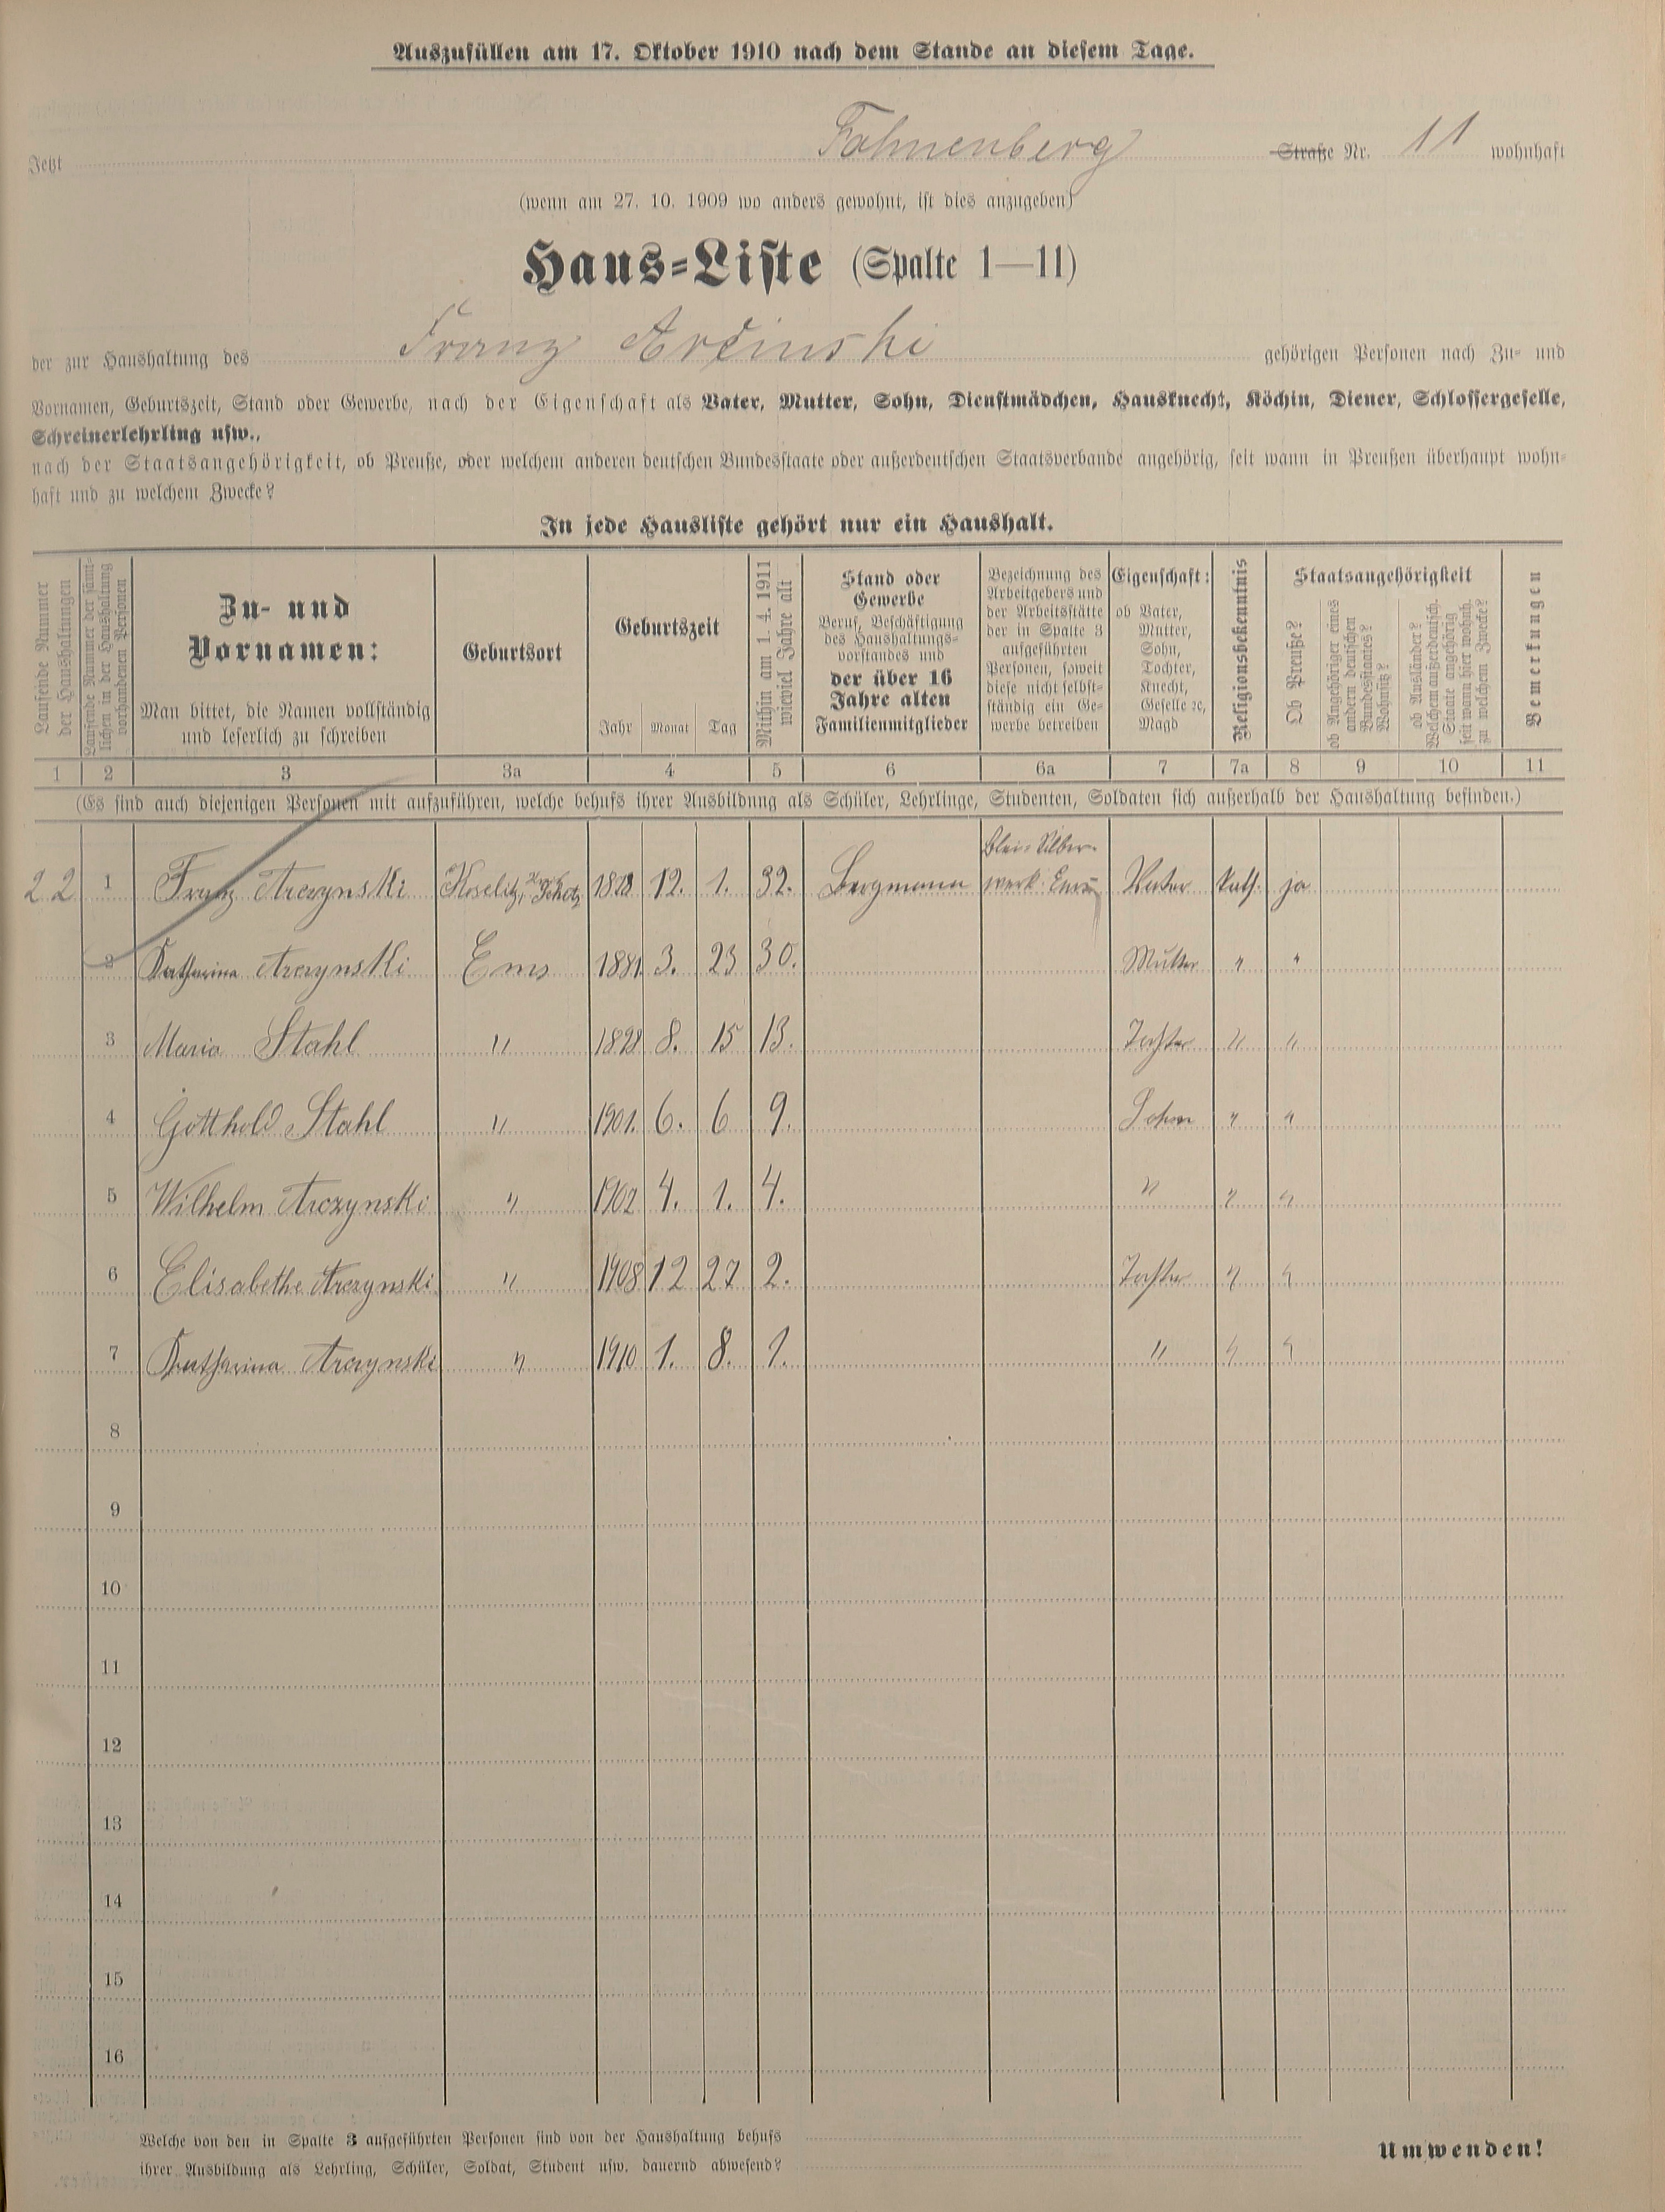 Auszufüllen am 17. Oktober 1910 nach dem Stande an diesem Tage.
Jetzt Fahnenberg Straße Nr. 11 wohnhaft
(wenn am 27. 10. 1909 wo anders gewohnt, ist dies anzugeben)
Haus-Liste (Spalte 1—11)
der zur Haushaltung des Franz Arcinski gehörigen Personen nach Zu- und
Vornamen, Geburtszeit, Stand oder Gewerbe, nach der Eigenschaft als Vater, Mutter, Sohn, Dienstmädchen, Hausknecht, Köchin, Diener, Schlossergeselle,
Schreinerlehrling usw.,
nach der Staatsangehörigkeit, ob Preuße, oder welchem anderen deutschen Bundesstaate oder außerdeutschen Staatsverbande angehörig, seit wann in Preußen überhaupt wohn-
haft und zu welchem Zwecke?
In jede Hausliste gehört nur ein Haushalt.
Laufende Nummer
der Haushaltungen
Laufende Nummer der sämt-
lichen in der Haushaltung
vorhandenen Personen
Zu- und
Vornamen:
Man bittet, die Namen vollständig
und leserlich zu schreiben
Geburtsort
Geburtszeit
Jahr Monat Tag
Mithin am 1. 4. 1911
wieviel Jahre alt
Stand oder
Gewerbe
Beruf, Beschäftigung
des Haushaltungs-
vorstandes und
der über 16
Jahre alten
Familienmitglieder
Bezeichnung des
Arbeitgebers und
der Arbeitsstätte
der in Spalte 3
aufgeführten
Personen, soweit
diese nicht selbst-
ständig ein Ge-
werbe betreiben
Eigenschaft:
ob Vater,
Mutter,
Sohn,
Tochter,
Knecht,
Geselle ꝛc,
Magd
Religionsbekenntnis
Staatsangehörigkeit
Ob Preuße?
ob Angehöriger eines
andern deutschen
Bundesstaates?
Wohnsitz?
ob Ausländer?
Welchem außerdeutsch.
Staate angehörig
seit wann hier wohnh.
zu welchem Zwecke?
Bemerkungen
1 2 3 3a 4 5 6 6a 7 7a 8 9 10 11
(Es sind auch diejenigen Personen mit aufzuführen, welche behufs ihrer Ausbildung als Schüler, Lehrlinge, Studenten, Soldaten sich außerhalb der Haushaltung befinden.)
22 1 Franz Arczynski Koselitz, 1878 12. 1. 32. Bergmann Blei- Silber-
werk Ems Vater kath. ja
2 Katharina Arczynski Ems 1881 3. 23 30. Mutter " "
3 Maria Stahl " 1898 8. 15 13. Tochter " "
4 Gotthold Stahl " 1901. 6. 6 9. Sohn " "
5 Wilhelm Arczynski " 1907 4. 1. 4. " " "
6 Elisabethe Arczynski " 1908 12 27 2. Tochter " "
7 Katharina Arczynski " 1910 1. 8. 1. " " "
8
9
10
11
12
13
14
15
16
Welche von den in Spalte 3 aufgeführten Personen sind von der Haushaltung behufs
ihrer Ausbildung als Lehrling, Schüler, Soldat, Student usw. dauernd abwesend?
Umwenden!